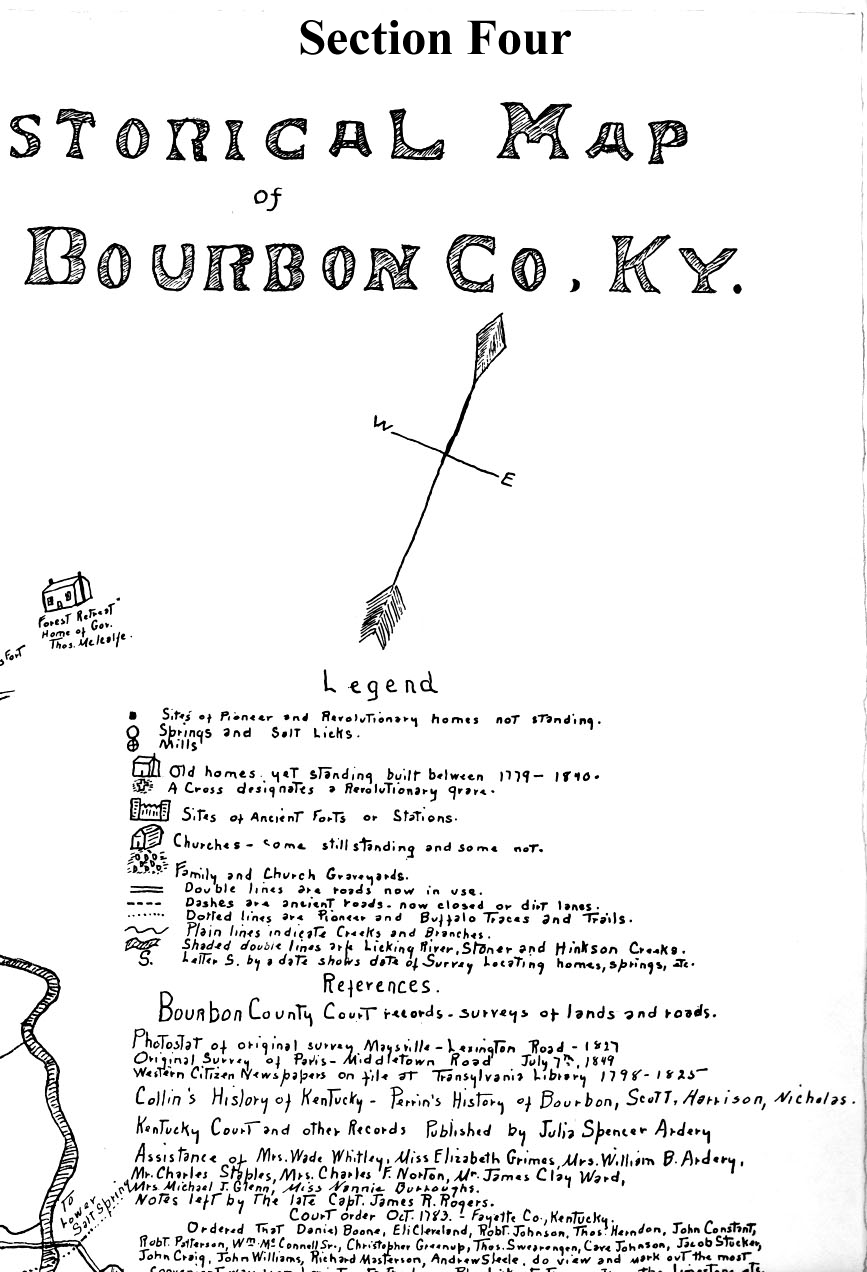 Section Four
STORICAL MAP
of
BOURBON CO, KY.
W
E
Forest Retreat"
Home of Gov.
Thos. Metcalfe.
Fort
Legend
Sites of Pioneer and Revolutionary homes not standing.
Springs and Salt Licks.
Mills
Old homes yet standing built between 1779 - 1840.
A Cross designates a Revolutionary grave.
Sites of Ancient Forts or Stations.
Churches - some still standing and some not.
Family and Church Graveyards.
Double lines are roads now in use.
Dashes are ancient roads - now closed or dirt lanes.
Dotted lines are Pioneer and Buffalo Traces and Trails.
Plain lines indicate Creeks and Branches.
Shaded double lines are Licking River, Stoner and Hinkson Creeks.
S. Letter S. by a date shows date of Survey Locating homes, springs, etc.
References.
Bourbon County Court records - surveys of lands and roads.
Photostat of original survey Maysville - Lexington Road - 1827
Original Survey of Paris - Middletown Road July 7th, 1849
Western Citizen Newspapers on file at Transylvania Library 1798 - 1825
Collin's History of Kentucky - Perrin's History of Bourbon, Scott, Harrison, Nicholas.
Kentucky Court and other Records Published by Julia Spencer Ardery
Assistance of Mrs. Wade Whitley, Miss Elizabeth Grimes, Mrs. William B. Ardery,
Mr. Charles Staples, Mrs. Charles F. Norton, Mr. James Clay Ward,
Mrs. Michael J. Glenn, Miss Nannie Burroughs.
Notes left by The late Capt. James R. Rogers.
To
Lower
Salt Spring
Court order Oct. 1783. - Fayette Co., Kentucky.
Ordered That Daniel Boone, Eli Cleveland, Robt. Johnson, Thos. Herndon, John Constant,
Robt. Patterson, Wm. McConnell Sr., Christopher Greenup, Thos. Swearengen, Cave Johnson, Jacob Stucker,
John Craig, John Williams, Richard Masterson, Andrew Steele, do view and mark out the most